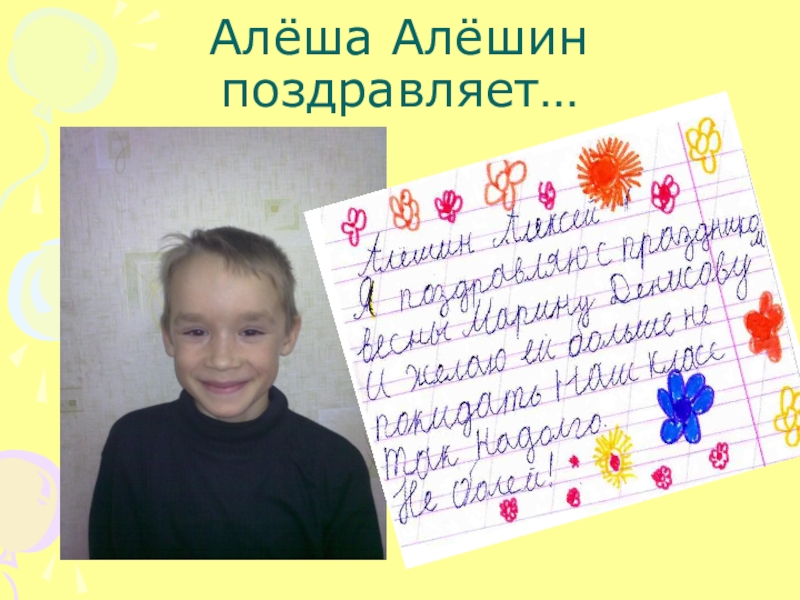 Алёша Алёшин
поздравляет...
Алёшин Алексей
Я поздравляю с праздником
весны Марину Денисову
И желаю ей больше не
покидать Наш класс
так надолго.
Не болей!